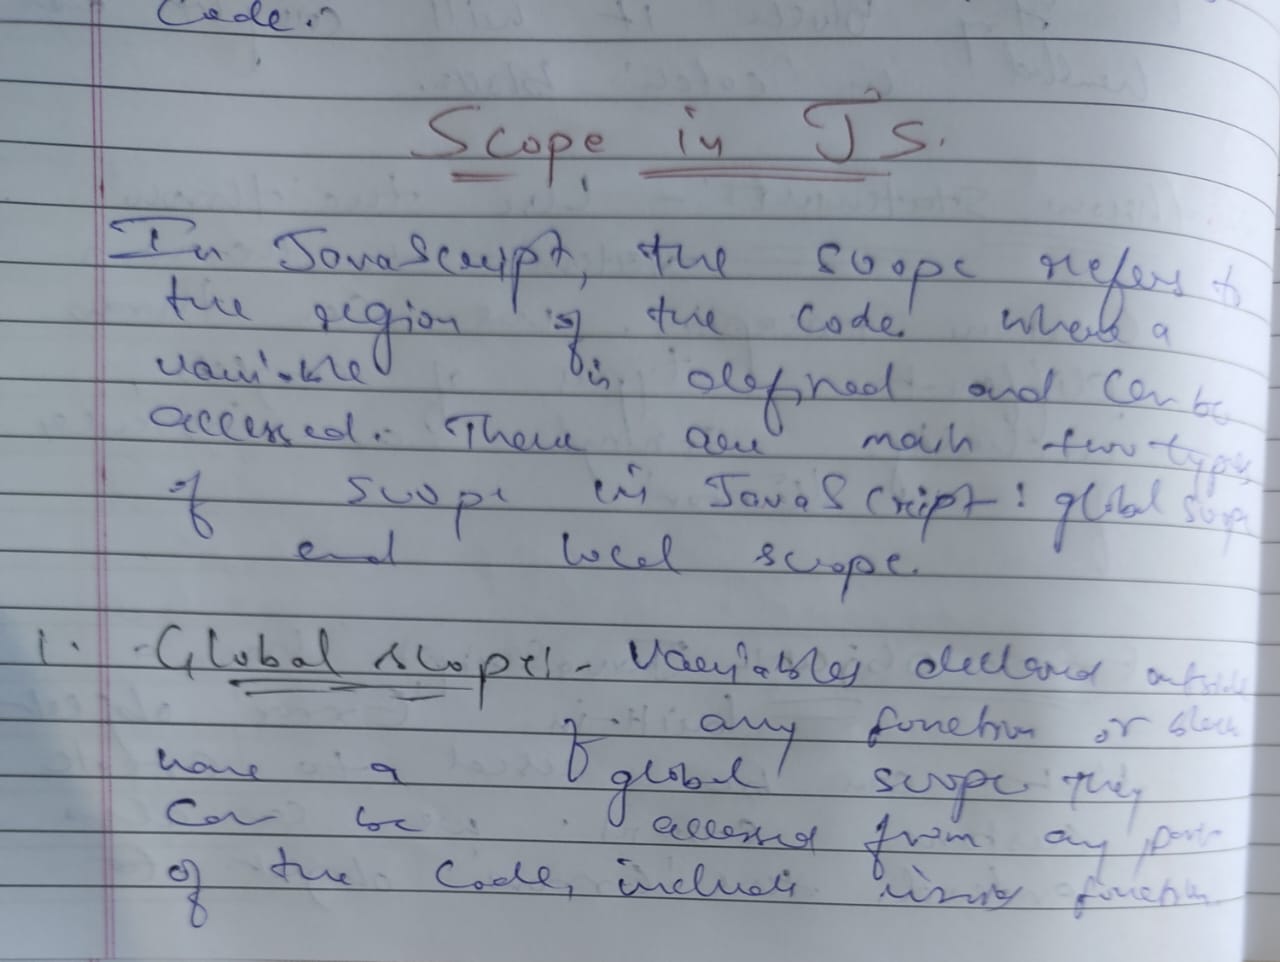 Code.
Scope in JS.
In JavaScript, the scope refers to
the region of the code where a
variable is defined and can be
accessed. There are main two types
of scope in JavaScript : global scope
and local scope.
1. Global scope :- Variables declared outside
of any function or block
have a global scope. They
can be accessed from any part
of the code, including function.